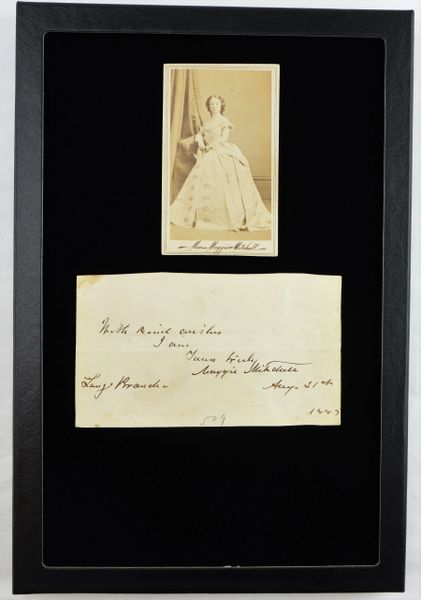 Miss Maggie Mitchell
With kind wishes
I am
Yours truly
Maggie Mitchell
Long Branch - Aug. 21st
1883
529